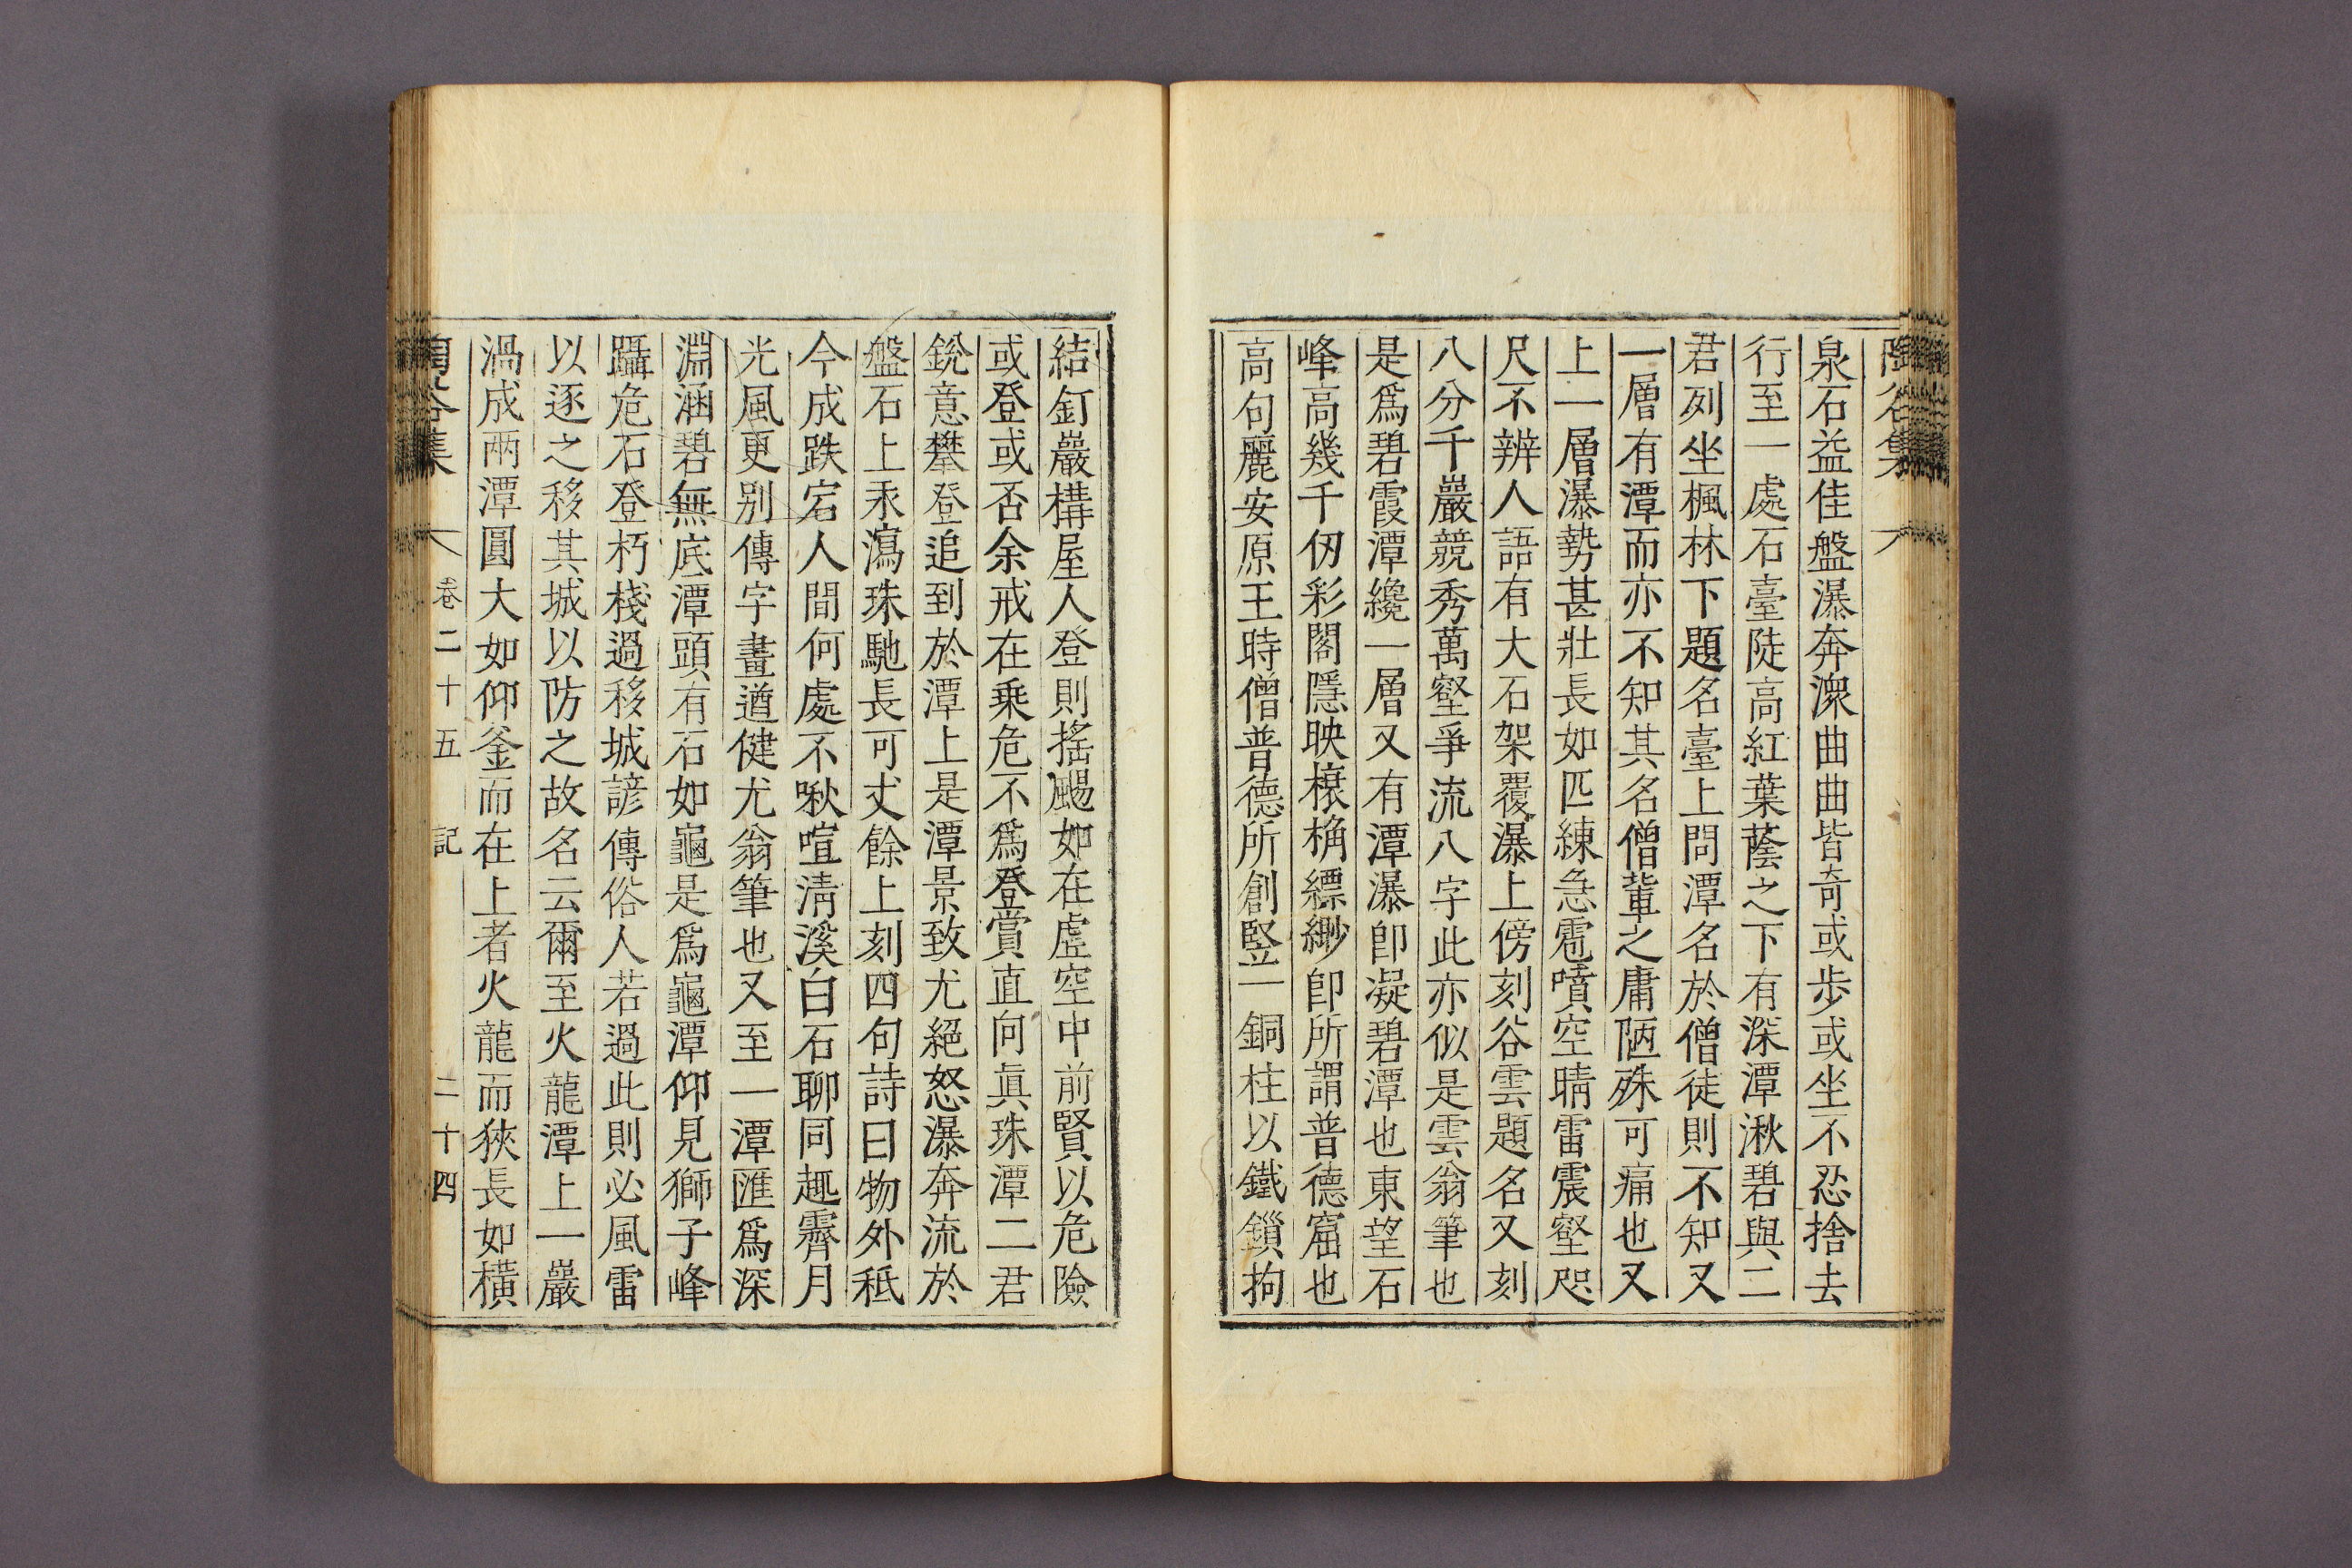 陶谷集
泉石益佳盤瀑奔潨曲曲皆奇或步或坐不忍捨去
行至一處石臺陡高紅葉蔭之下有深潭湫碧與二
君列坐楓林下題名臺上問潭名於僧徒則不知又
一層有潭而亦不知其名僧輩之庸陋殊可痛也又
上一層瀑勢甚壯長如匹練急雹噴空晴雷震壑咫
尺不辨人語有大石架覆瀑上傍刻谷雲題名又刻
八分千巖競秀萬壑爭流八字此亦似是雲翁筆也
是爲碧霞潭纔一層又有潭瀑卽凝碧潭也東望石
峰高幾千仞彩閣隱映榱桷縹緲卽所謂普德窟也
高句麗安原王時僧普德所創竪一銅柱以鐵鎖拘
結釘巖構屋人登則搖颺如在虛空中前賢以危險
或登或否余戒在乗危不爲登賞直向眞珠潭二君
銳意攀登追到於潭上是潭景致尤絕怒瀑奔流於
盤石上汞瀉珠馳長可丈餘上刻四句詩曰物外秪
今成跌宕人間何處不啾喧淸溪白石聊同趣霽月
光風更別傳字畫遒健尤翁筆也又至一潭匯爲深
淵涵碧無底潭頭有石如龜是爲龜潭仰見獅子峰
躡危石登朽棧過移城諺傳俗人若過此則必風雷
以逐之移其城以防之故名云爾至火龍潭上一巖
渦成兩潭圓大如仰釜而在上者火龍而狹長如橫
陶谷集 卷二十五 記 二十四